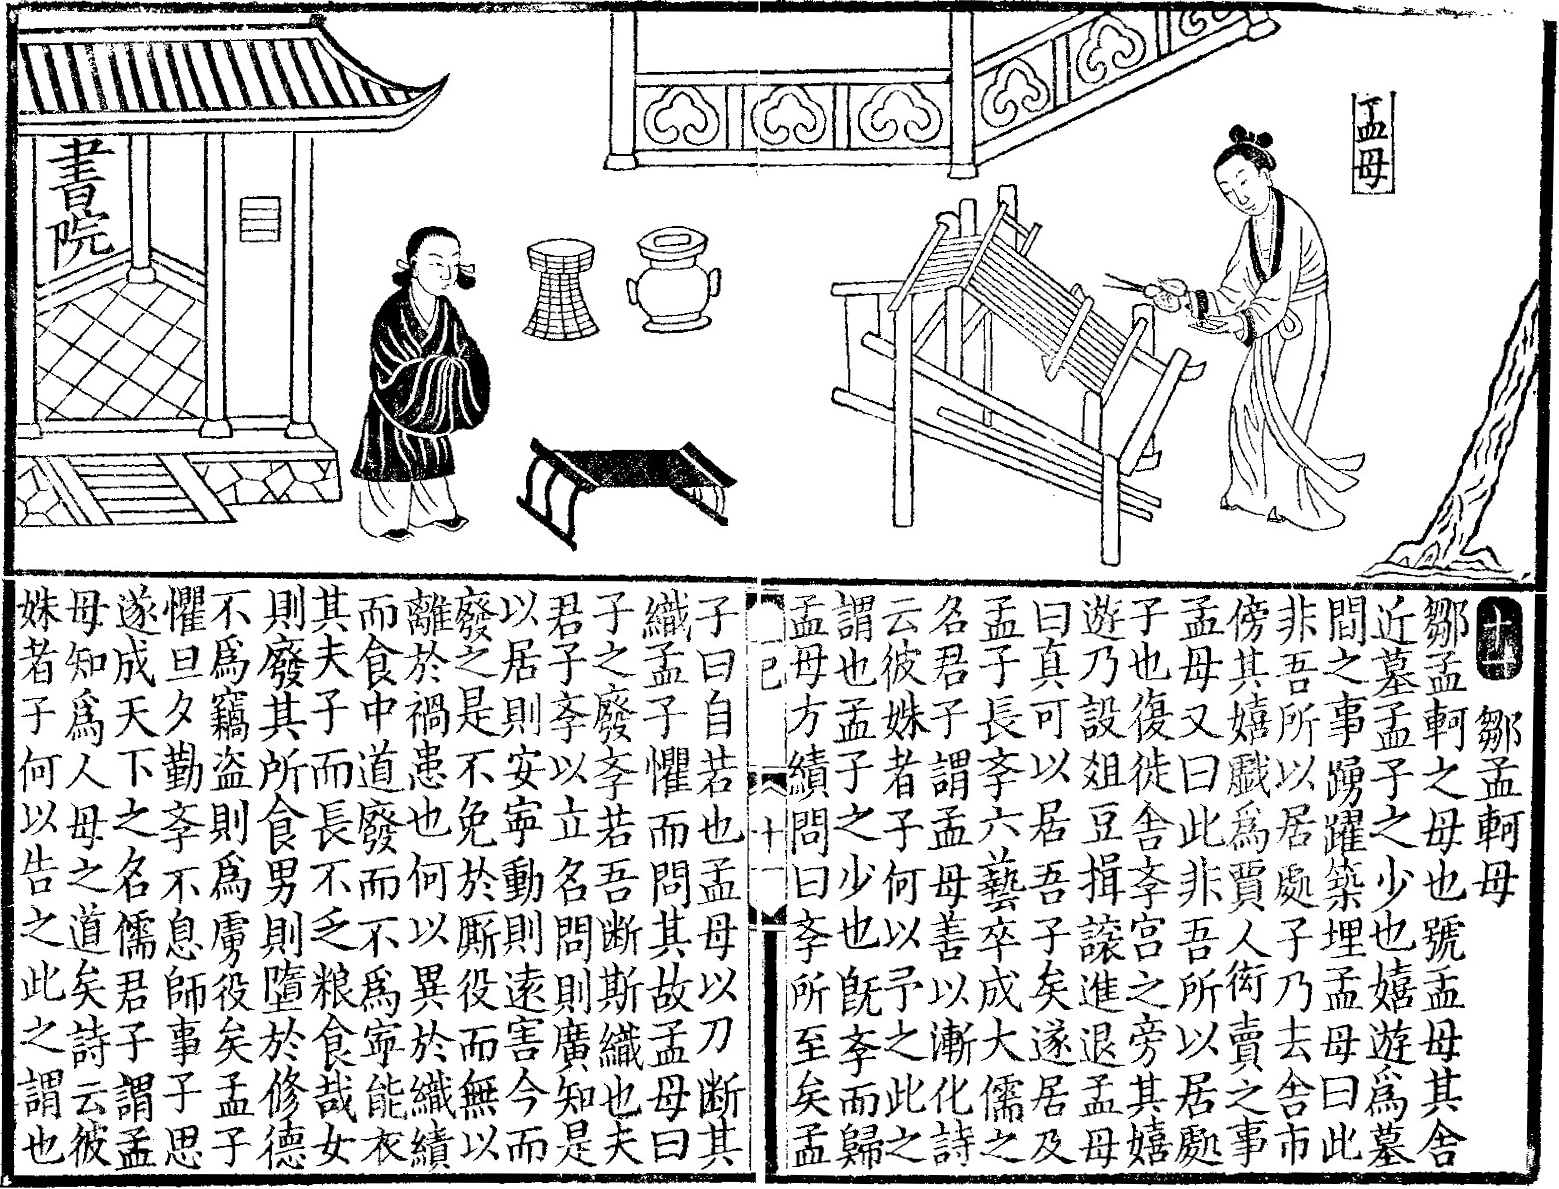 孟母
書院
十一
鄒孟軻母
鄒孟軻之母也號孟母其舎
近墓孟子之少也嬉遊爲墓
間之事踴躍築埋孟母曰此
非吾所以居處子乃去舎市
傍其嬉戯爲賈人衒賣之事
孟母又曰此非吾所以居處
子也復徙舎斈宫之旁其嬉
遊乃設俎豆揖讓進退孟母
曰真可以居吾子矣遂居及
孟子長斈六藝卒成大儒之
名君子謂孟母善以漸化詩
云彼姝者子何以予之此之
謂也孟子之少也旣斈而歸
孟母方績問曰斈所至矣孟
十一
子曰自若也孟母以刀断其
織孟子懼而問其故孟母曰
子之廢斈若吾断斯織也夫
君子斈以立名問則廣知是
以居則安寧動則遠害今而
廢之是不免於厮役而無以
離於禍患也何以異於織績
而食中道廢而不爲寧能衣
其夫子而長不乏粮食哉女
則廢其所食男則墮於修德
不爲竊盗則爲虜役矣孟子
懼旦夕勤斈不息師事子思
遂成天下之名儒君子謂孟
母知爲人母之道矣詩云彼
姝者子何以告之此之謂也